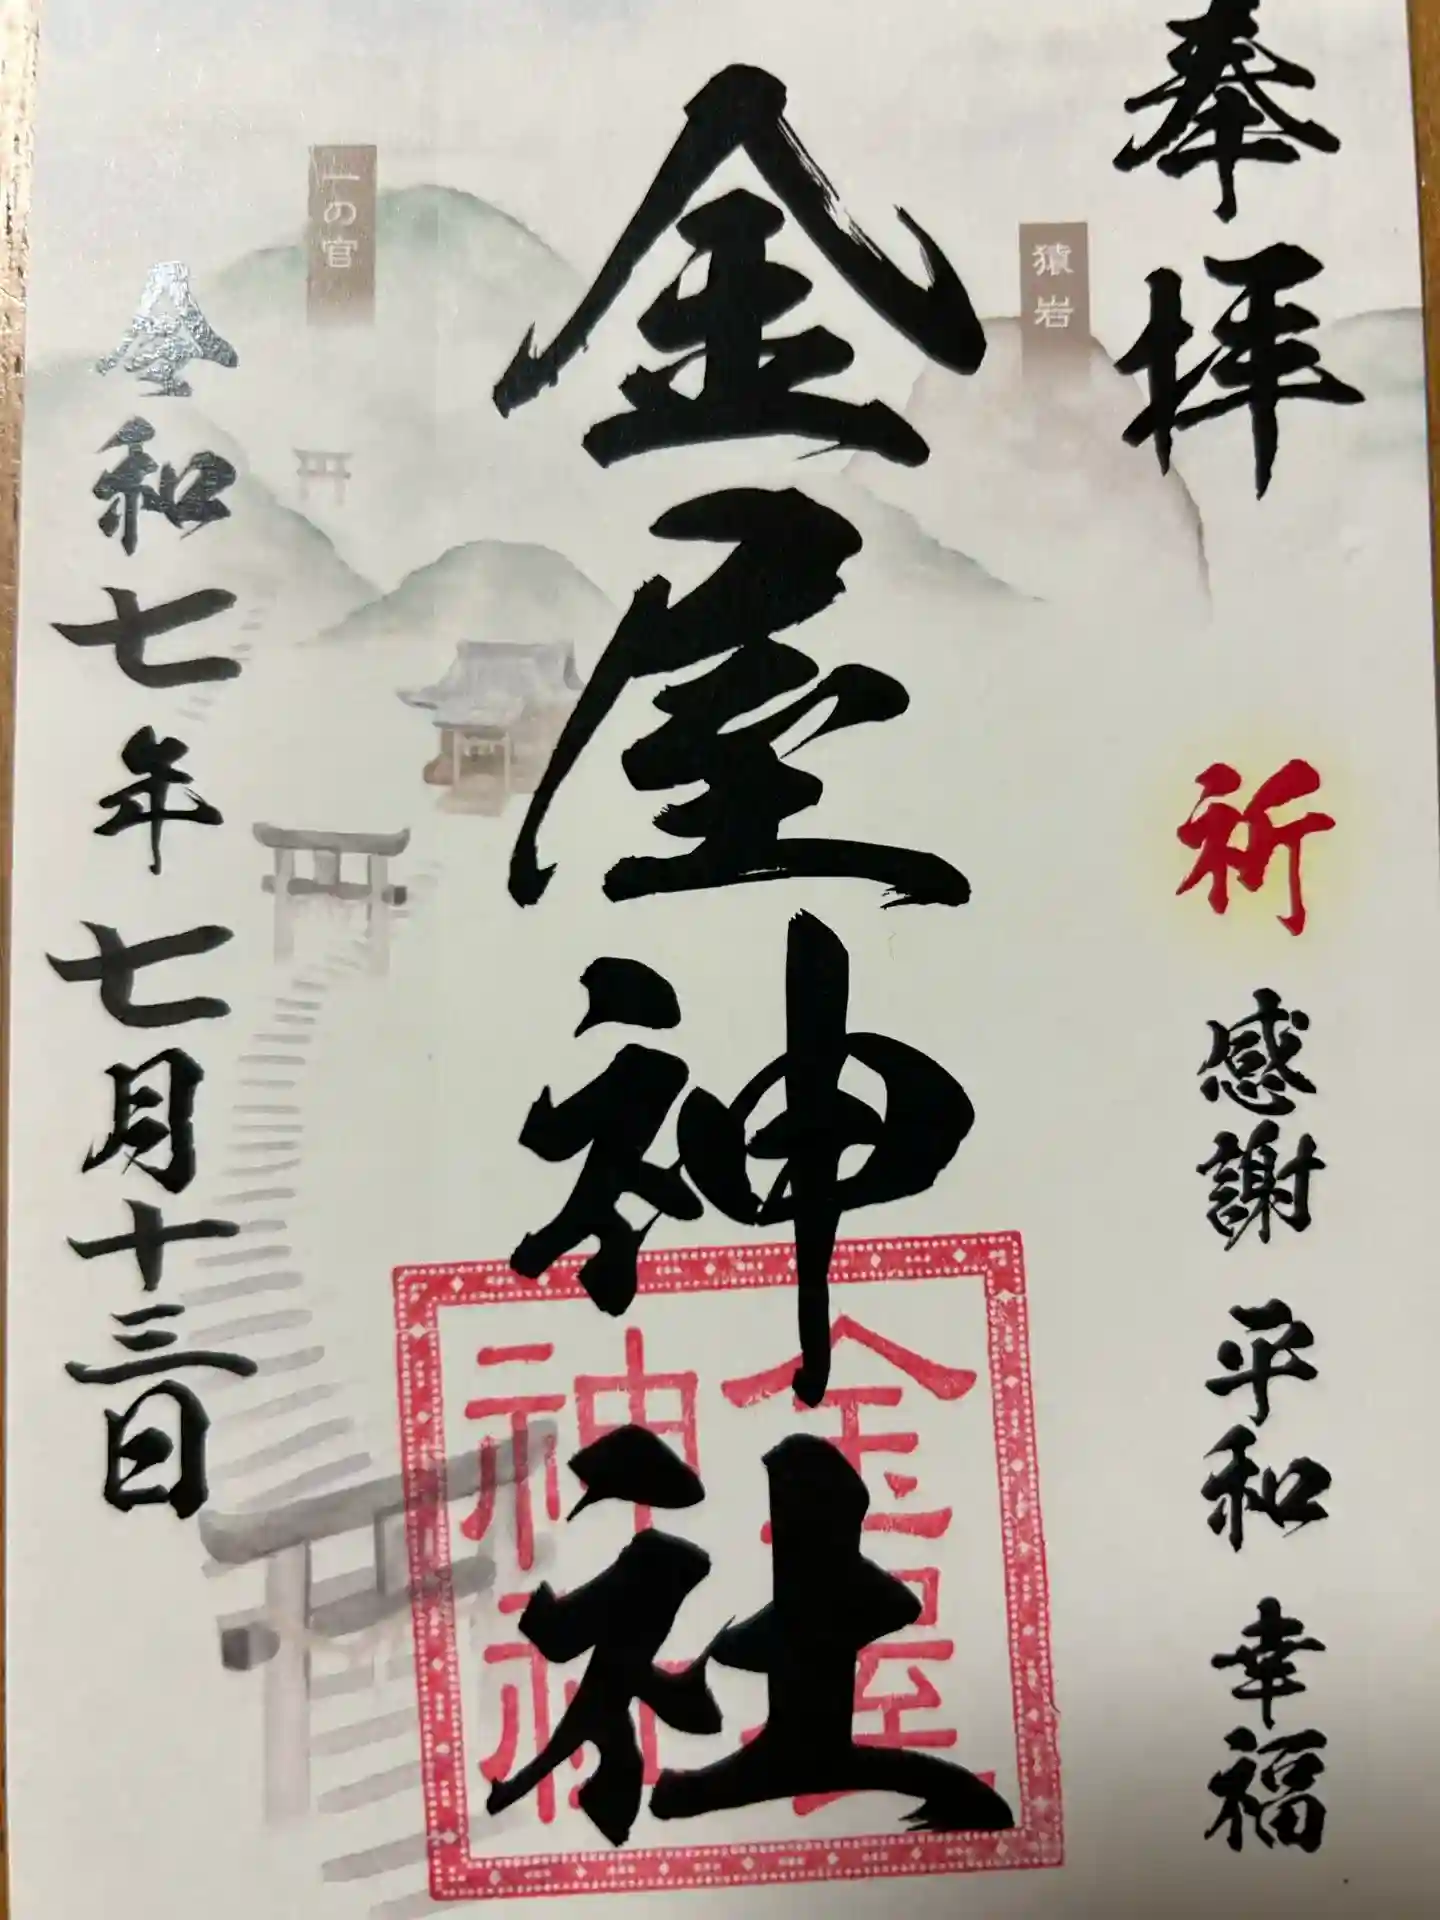 奉拝
祈 感謝 平和 幸福
猿岩
金屋神社
金屋
神社
一の宮
令和七年七月十三日